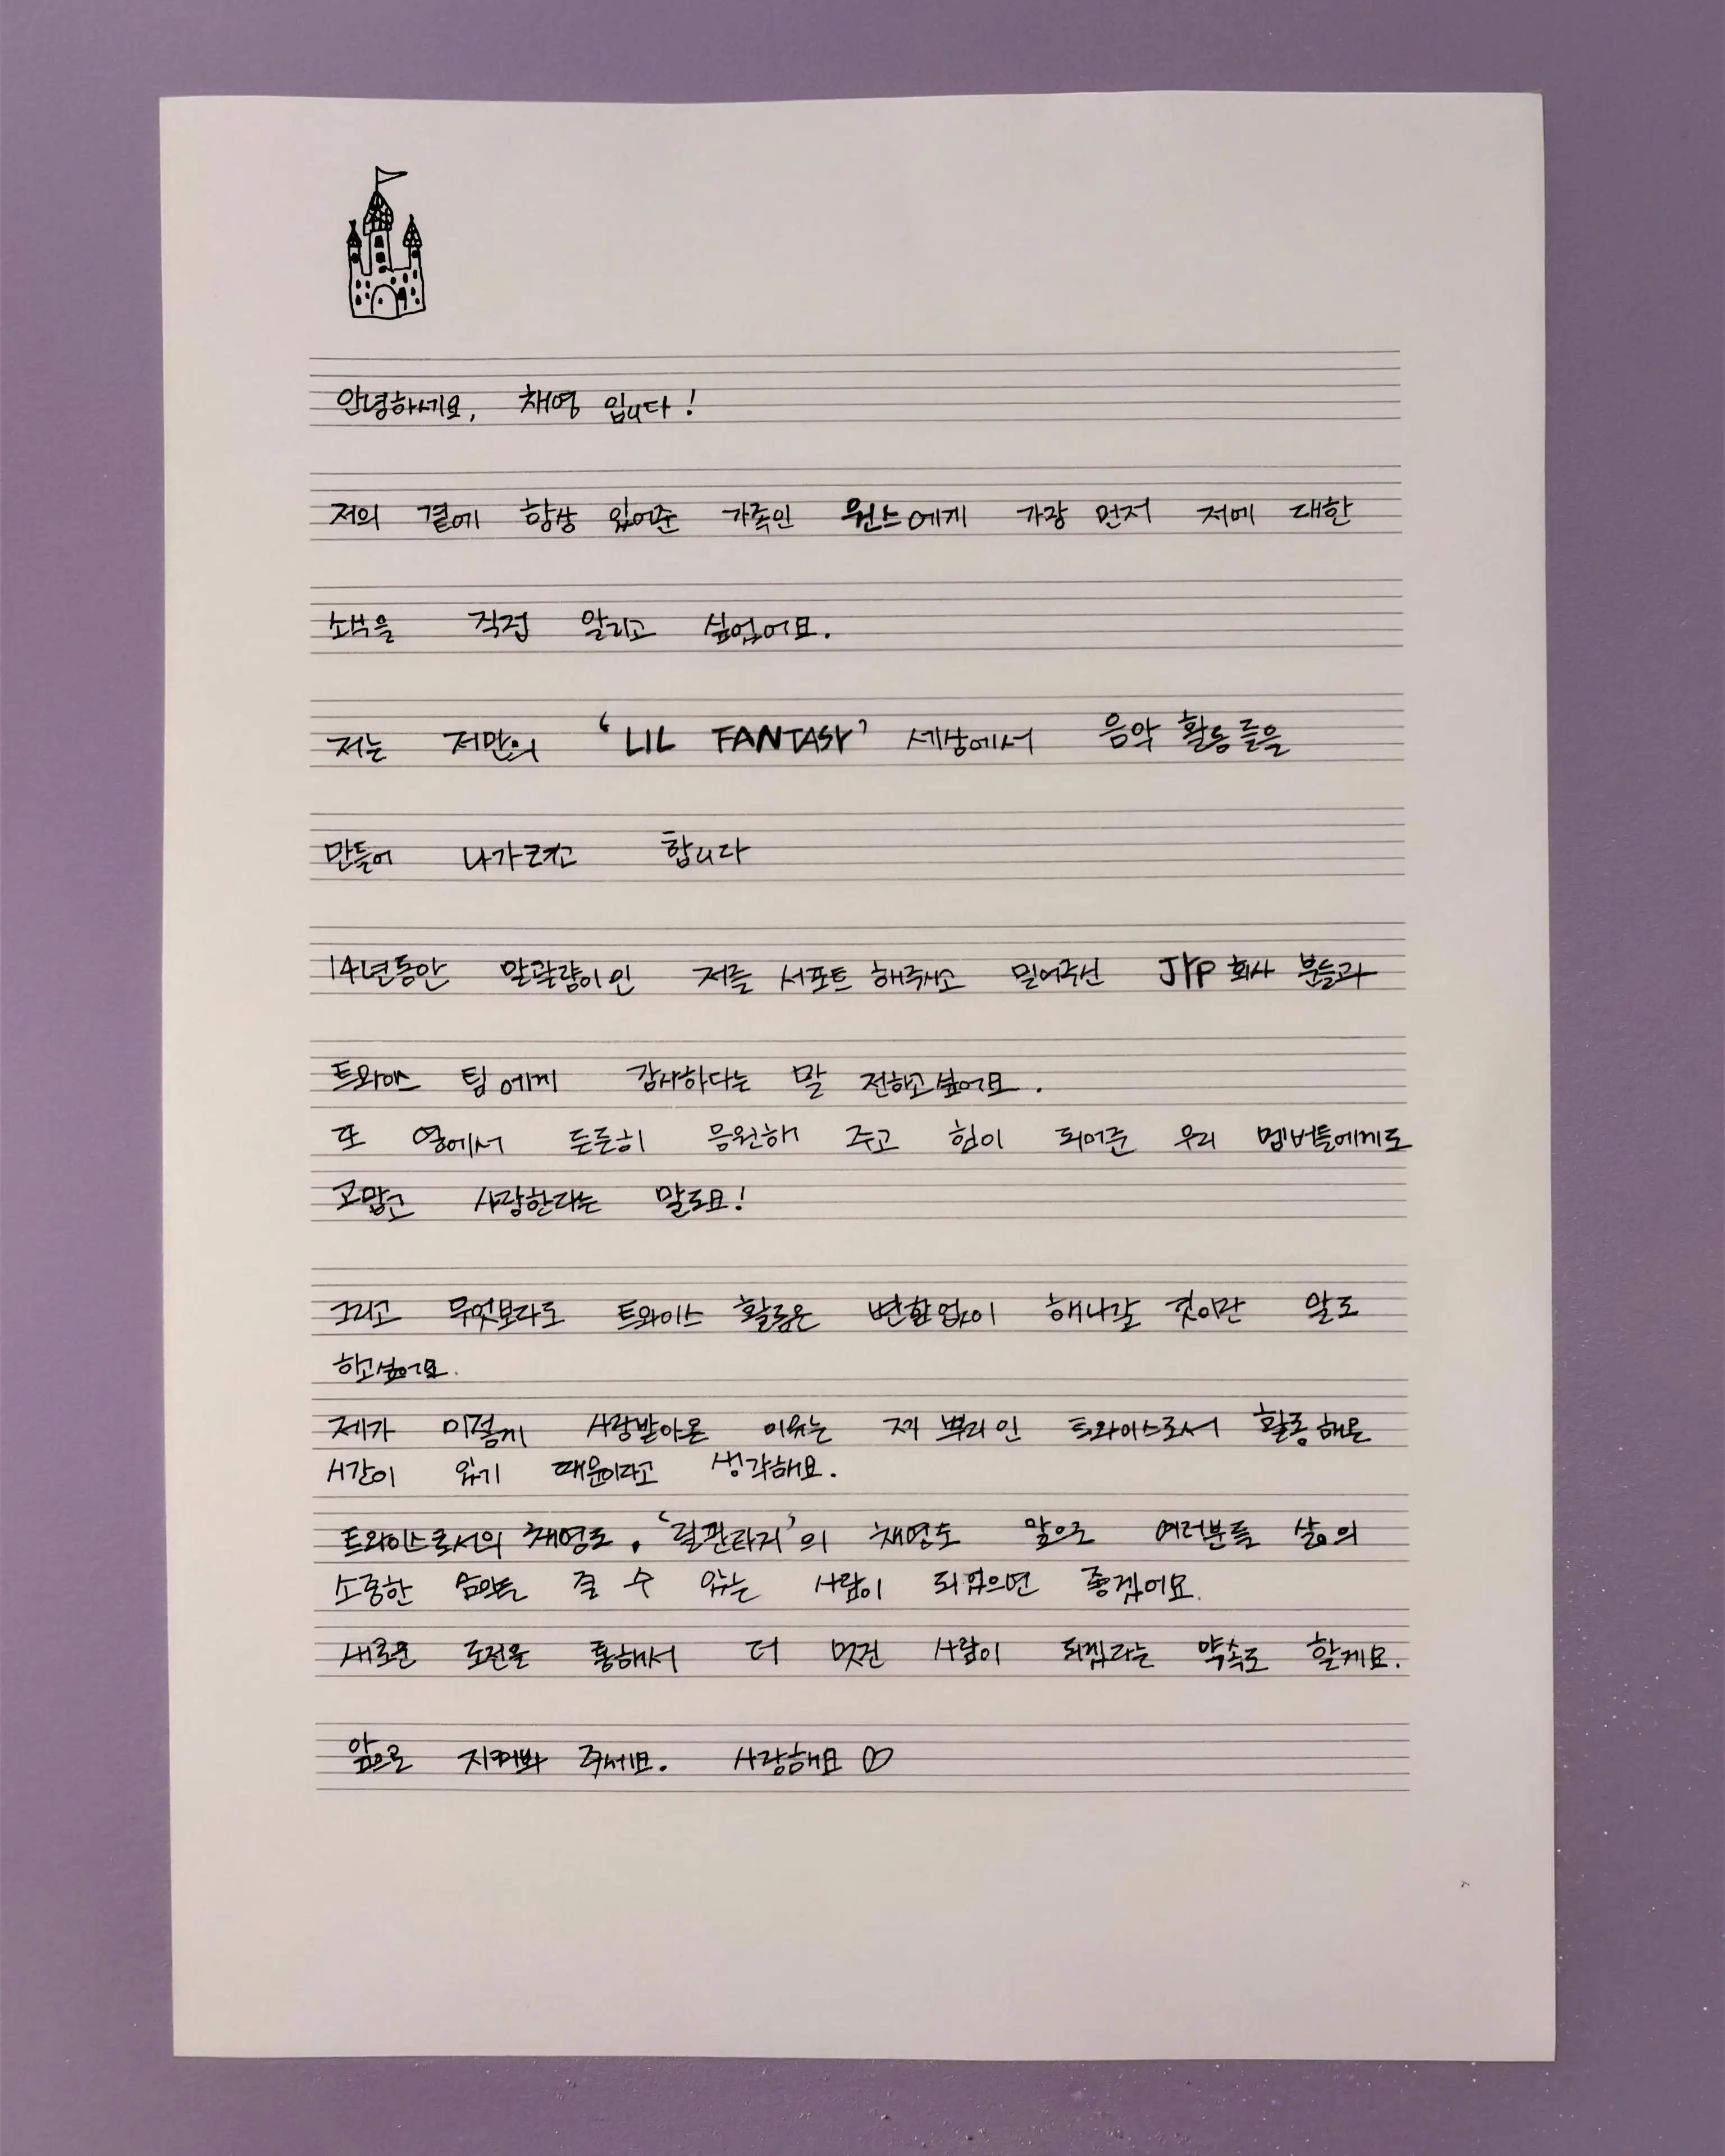 안녕하세요, 채영 입니다!
저의 곁에 항상 있어준 가족인 원스에게 가장 먼저 저에 대한
소식을 직접 알리고 싶었어요.
저는 저만의 'LIL FANTASY' 세상에서 음악 활동들을
만들어 나가려고 합니다
14년동안 말괄량이인 저를 서포트 해주시고 밀어주신 JYP 회사 분들과
트와이스 팀에게 감사하다는 말 전하고싶어요.
또 옆에서 든든히 응원해 주고 힘이 되어준 우리 멤버들에게도
고맙고 사랑한다는 말로요!
그리고 무엇보다도 트와이스 활동은 변함없이 해나갈 것이란 말도
하고싶어요.
제가 이렇게 사랑받아온 이유는 제 뿌리인 트와이스로서 활동해온
시간이 있기 때문이라고 생각해요.
트와이스로서의 채영도, '릴판타지'의 채영도 앞으로 여러분들 삶의
소중한 줄 수 있는 사람이 되었으면 좋겠어요.
새로운 도전을 통해서 더 멋진 사람이 되겠다는 약속도 할게요.
앞으로 지켜봐 주세요. 사랑해요 ♡